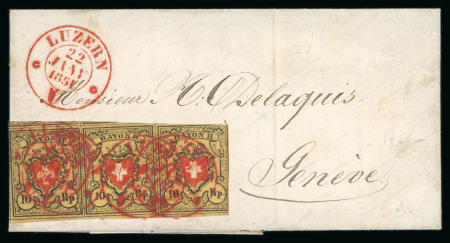 LUZERN
22
JANV
1851
Monsieur A. Delaquis
Genève
RAYON II RAYON II RAYON II
10 Rp. 10 Rp. 10 Rp.